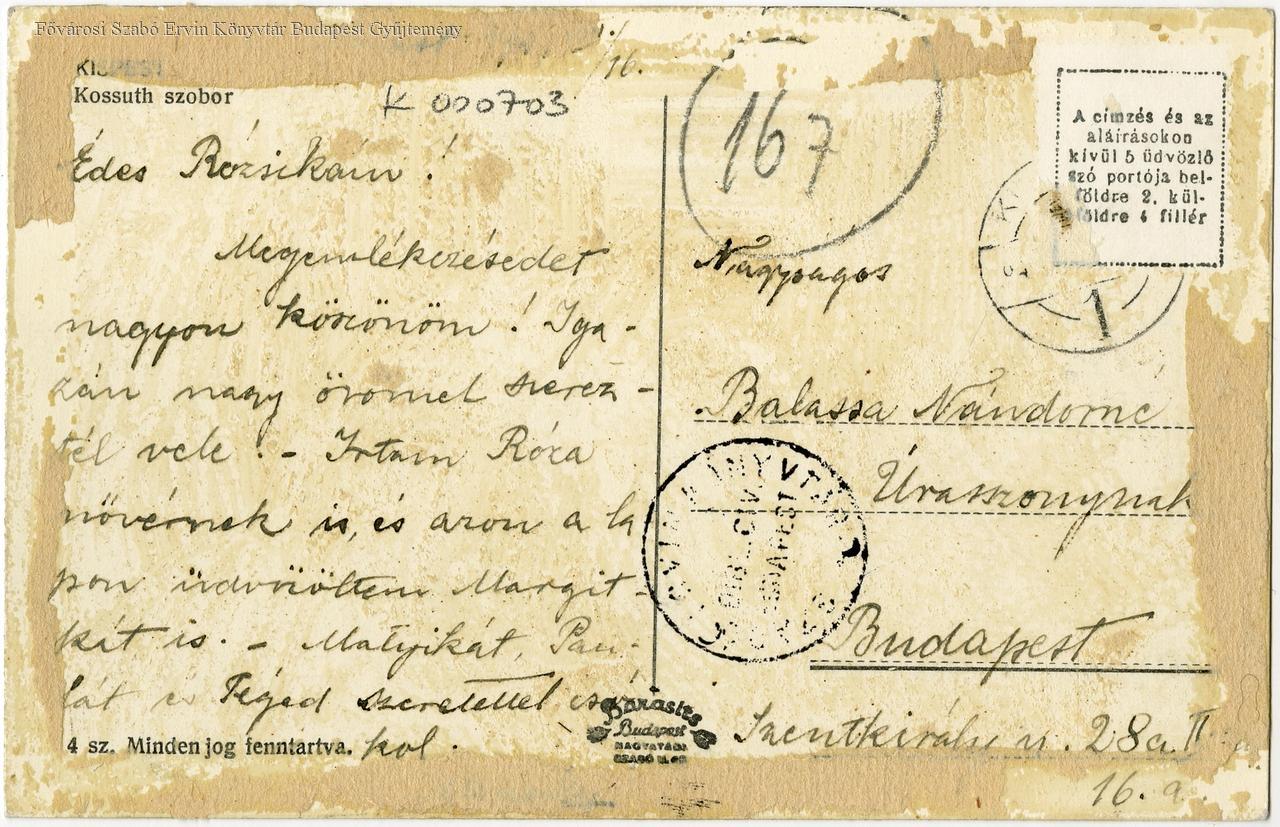 Fővárosi Szabó Ervin Könyvtár Budapest Gyűjtemény
KISPEST
Kossuth szobor
K 000703
/16.
167
A címzés és az
aláírásokon
kívül 5 üdvözlő
szó portója bel-
földre 2, kül-
földre 4 fillér
Édes Rózsikám!
Megemlékezésedet
nagyon köszönöm! Iga-
zán nagy örömet szerez-
tél vele! - Irtam Róza
növérnek is, és azon a la
pon üdvözöltem Margit-
kát is. - Matyikát, Pau-
lát és Téged szeretettel csó
kol.
4 sz. Minden jog fenntartva.
Nagyságos
Balassa Nándorné
Úrasszonynak
Budapest
Szentkirályi u. 28a II
16. a.
KÖNYVTÁR
BUDAPEST
Barasits
Budapest
NAGYATÁDI
SZABÓ U.